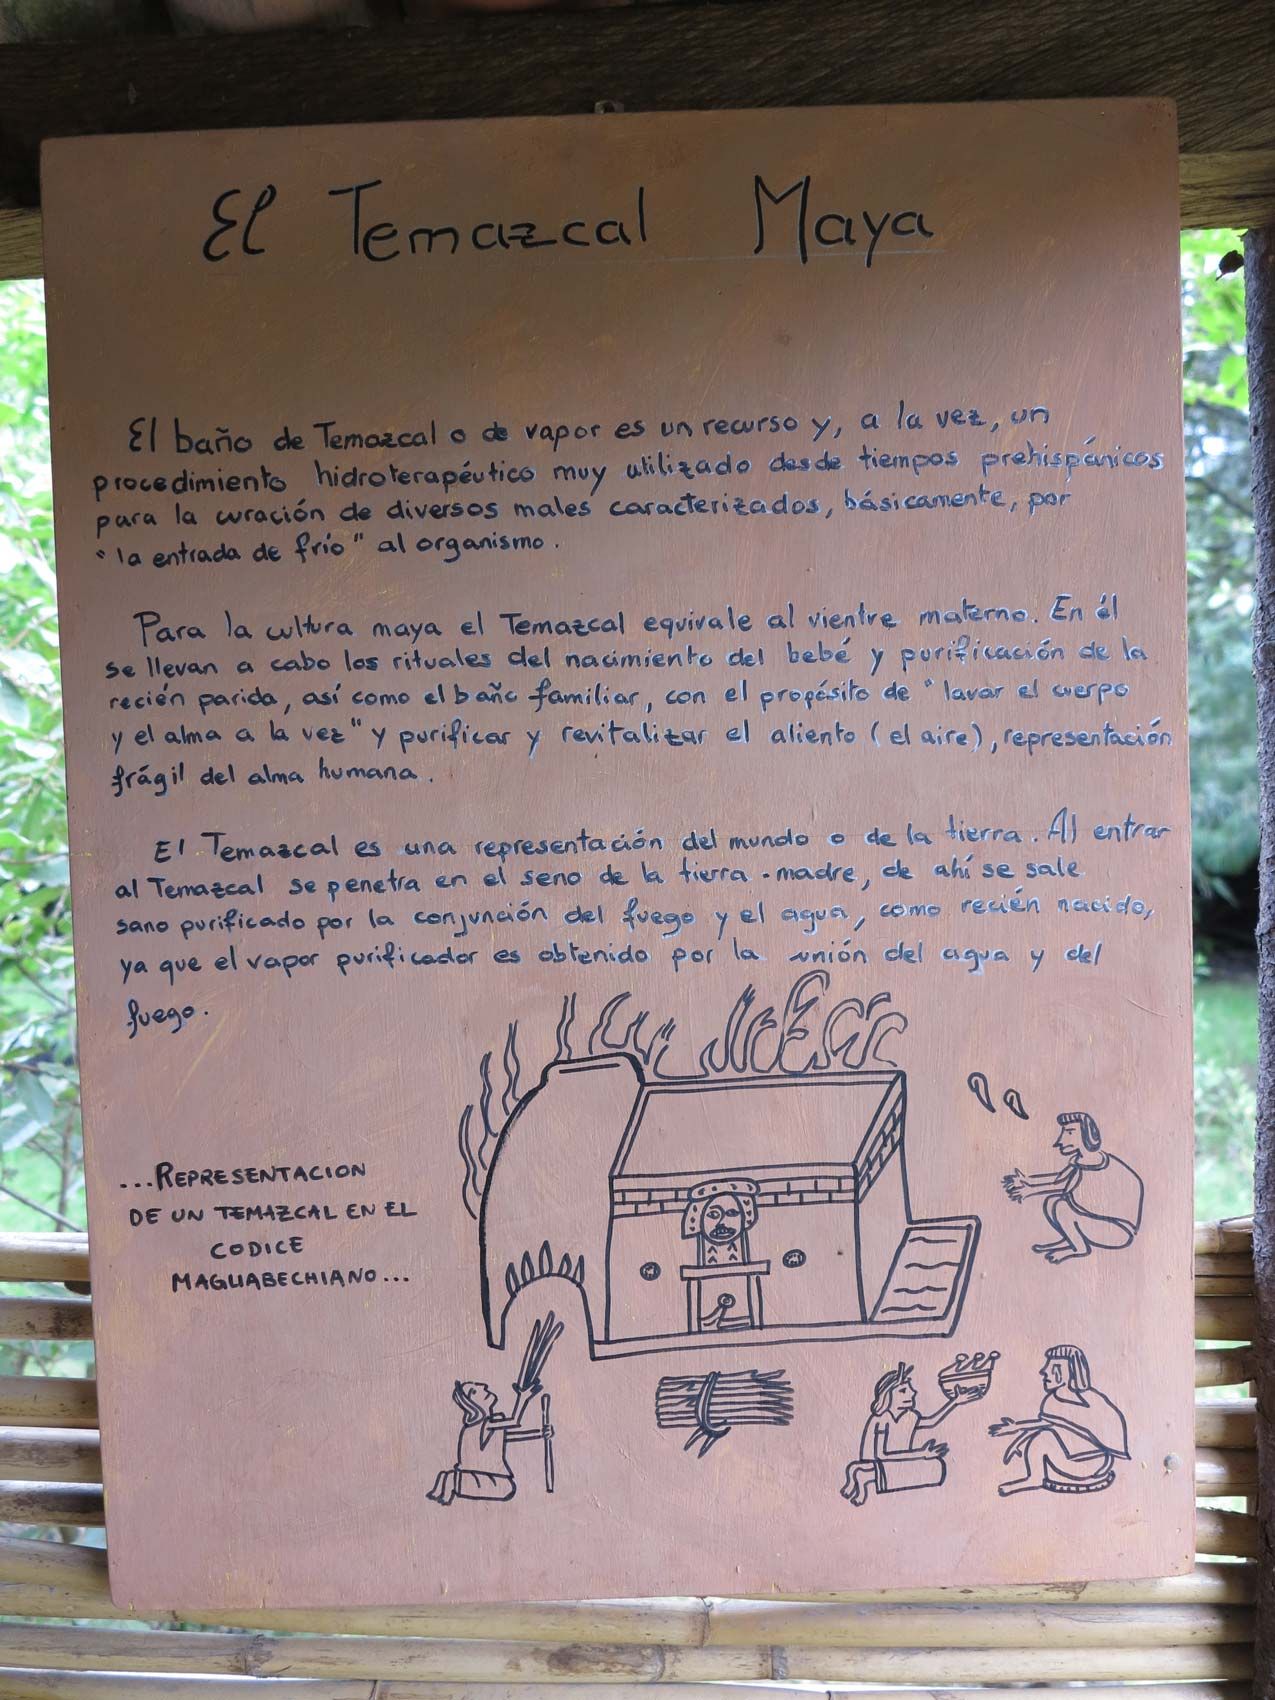 El Temazcal Maya
El baño de Temazcal o de vapor es un recurso y, a la vez, un
procedimiento hidroterapéutico muy utilizado desde tiempos prehispánicos
para la curación de diversos males caracterizados, básicamente, por
"la entrada de frío" al organismo.
Para la cultura maya el Temazcal equivale al vientre materno. En él
se llevan a cabo los rituales del nacimiento del bebé y purificación de la
recién parida, así como el baño familiar, con el propósito de "lavar el cuerpo
y el alma a la vez" y purificar y revitalizar el aliento (el aire), representación
frágil del alma humana.
El Temazcal es una representación del mundo o de la tierra. Al entrar
al Temazcal se penetra en el seno de la tierra-madre, de ahí se sale
sano purificado por la conjunción del fuego y el agua, como recién nacido,
ya que el vapor purificador es obtenido por la unión del agua y del
fuego.
...REPRESENTACION
DE UN TEMAZCAL EN EL
CODICE
MAGUABECHIANO...